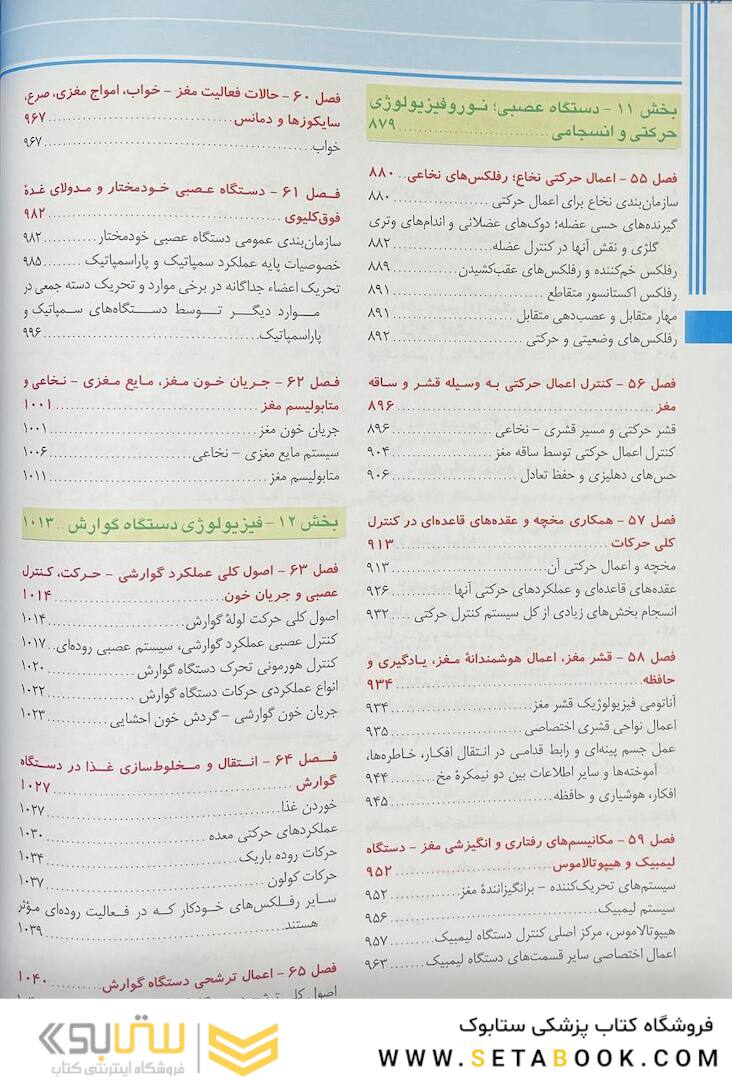 بخش ۱۱ - دستگاه عصبی؛ نوروفیزیولوژی
حرکتی و انسجامی ۸۷۹
فصل ۵۵ - اعمال حرکتی نخاع؛ رفلکس‌های نخاعی ۸۸۰
سازمان‌بندی نخاع برای اعمال حرکتی ۸۸۰
گیرنده‌های حسی عضله؛ دوک‌های عضلانی و اندام‌های وتری
گلژی و نقش آنها در کنترل عضله ۸۸۲
رفلکس خم‌کننده و رفلکس‌های عقب‌کشیدن ۸۸۹
رفلکس اکستانسور متقاطع ۸۹۱
مهار متقابل و عصب‌دهی متقابل ۸۹۱
رفلکس‌های وضعیتی و حرکتی ۸۹۲
فصل ۵۶ - کنترل اعمال حرکتی به وسیله قشر و ساقه
مغز ۸۹۶
قشر حرکتی و مسیر قشری - نخاعی ۸۹۶
کنترل اعمال حرکتی توسط ساقه مغز ۹۰۴
حس‌های دهلیزی و حفظ تعادل ۹۰۶
فصل ۵۷ - همکاری مخچه و عقده‌های قاعده‌ای در کنترل
کلی حرکات ۹۱۳
مخچه و اعمال حرکتی آن ۹۱۳
عقده‌های قاعده‌ای و عملکردهای حرکتی آنها ۹۲۶
انسجام بخش‌های زیادی از کل سیستم کنترل حرکتی ۹۳۲
فصل ۵۸ - قشر مغز، اعمال هوشمندانهٔ مغز، یادگیری و
حافظه ۹۳۴
آناتومی فیزیولوژیک قشر مغز ۹۳۴
اعمال نواحی قشری اختصاصی ۹۳۵
عمل جسم پینه‌ای و رابط قدامی در انتقال افکار، خاطره‌ها،
آموخته‌ها و سایر اطلاعات بین دو نیمکرهٔ مخ ۹۴۴
افکار، هوشیاری و حافظه ۹۴۵
فصل ۵۹ - مکانیسم‌های رفتاری و انگیزشی مغز - دستگاه
لیمبیک و هیپوتالاموس ۹۵۲
سیستم‌های تحریک‌کننده - برانگیزانندهٔ مغز ۹۵۲
سیستم لیمبیک ۹۵۶
هیپوتالاموس، مرکز اصلی کنترل دستگاه لیمبیک ۹۵۷
اعمال اختصاصی سایر قسمت‌های دستگاه لیمبیک ۹۶۳
فصل ۶۰ - حالات فعالیت مغز - خواب، امواج مغزی، صرع،
سایکوزها و دمانس ۹۶۷
خواب ۹۶۷
فصل ۶۱ - دستگاه عصبی خودمختار و مدولای غدهٔ
فوق‌کلیوی ۹۸۲
سازمان‌بندی عمومی دستگاه عصبی خودمختار ۹۸۲
خصوصیات پایه عملکرد سمپاتیک و پاراسمپاتیک ۹۸۵
تحریک اعضاء جداگانه در برخی موارد و تحریک دسته جمعی در
موارد دیگر توسط دستگاه‌های سمپاتیک و
پاراسمپاتیک ۹۹۶
فصل ۶۲ - جریان خون مغز، مایع مغزی - نخاعی و
متابولیسم مغز ۱۰۰۱
جریان خون مغز ۱۰۰۱
سیستم مایع مغزی - نخاعی ۱۰۰۶
متابولیسم مغز ۱۰۱۱
بخش ۱۲ - فیزیولوژی دستگاه گوارش ۱۰۱۳
فصل ۶۳ - اصول کلی عملکرد گوارشی - حرکت، کنترل
عصبی و جریان خون ۱۰۱۴
اصول کلی حرکت لولهٔ گوارش ۱۰۱۴
کنترل عصبی عملکرد گوارشی، سیستم عصبی روده‌ای ۱۰۱۷
کنترل هورمونی تحرک دستگاه گوارش ۱۰۲۰
انواع عملکردی حرکات دستگاه گوارش ۱۰۲۲
جریان خون گوارشی - گردش خون احشایی ۱۰۲۳
فصل ۶۴ - انتقال و مخلوط‌سازی غذا در دستگاه
گوارش ۱۰۲۷
خوردن غذا ۱۰۲۷
عملکردهای حرکتی معده ۱۰۳۰
حرکات روده باریک ۱۰۳۴
حرکات کولون ۱۰۳۷
سایر رفلکس‌های خودکار که در فعالیت روده‌ای مؤثر
هستند ۱۰۳۹
فصل ۶۵ - اعمال ترشحی دستگاه گوارش ۱۰۴۰
اصول کلی
فروشگاه کتاب پزشکی ستابوک
WWW.SETABOOK.COM
ستابوک
فروشگاه اینترنتی کتاب